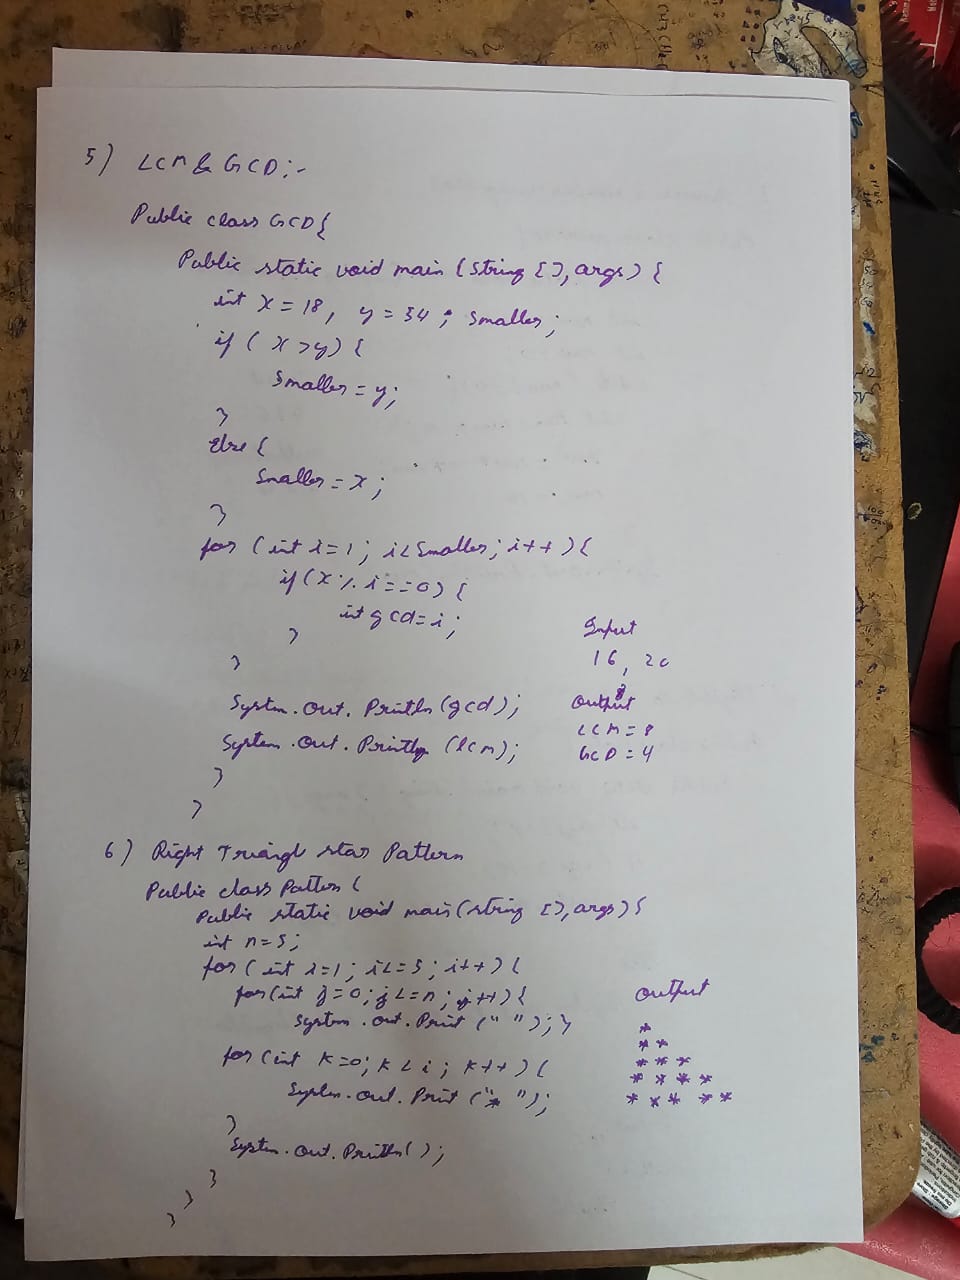 5) LCM & GCD :-
Public class GCD {
Public static void main (String [], args) {
int x = 18, y = 54 ; Smaller;
if ( x > y) {
Smaller = y;
}
Else {
Smaller = x ;
}
for (int i=1 ; i < Smaller; i++ ) {
if (x % i == 0) {
int gcd = i ;
}
}
System.out.Println (gcd);
System.out.Println (lcm);
}
}
Input
16, 20
Output
LCM = 8
GCD = 4
6) Right Triangl star Pattern
Public class Pattern {
Public static void main (string [], args) {
int n=5;
for ( int i=1 ; i<=5 ; i++ ) {
for (int j=0; j<=n ; j++) {
System.out.Print (" "); }
for (int k=0; k < i ; k++ ) {
System.out.Print ("* ");
}
System.out.Println ( );
}
}
}
Output
*
* *
* * *
* * * *
* * * * *